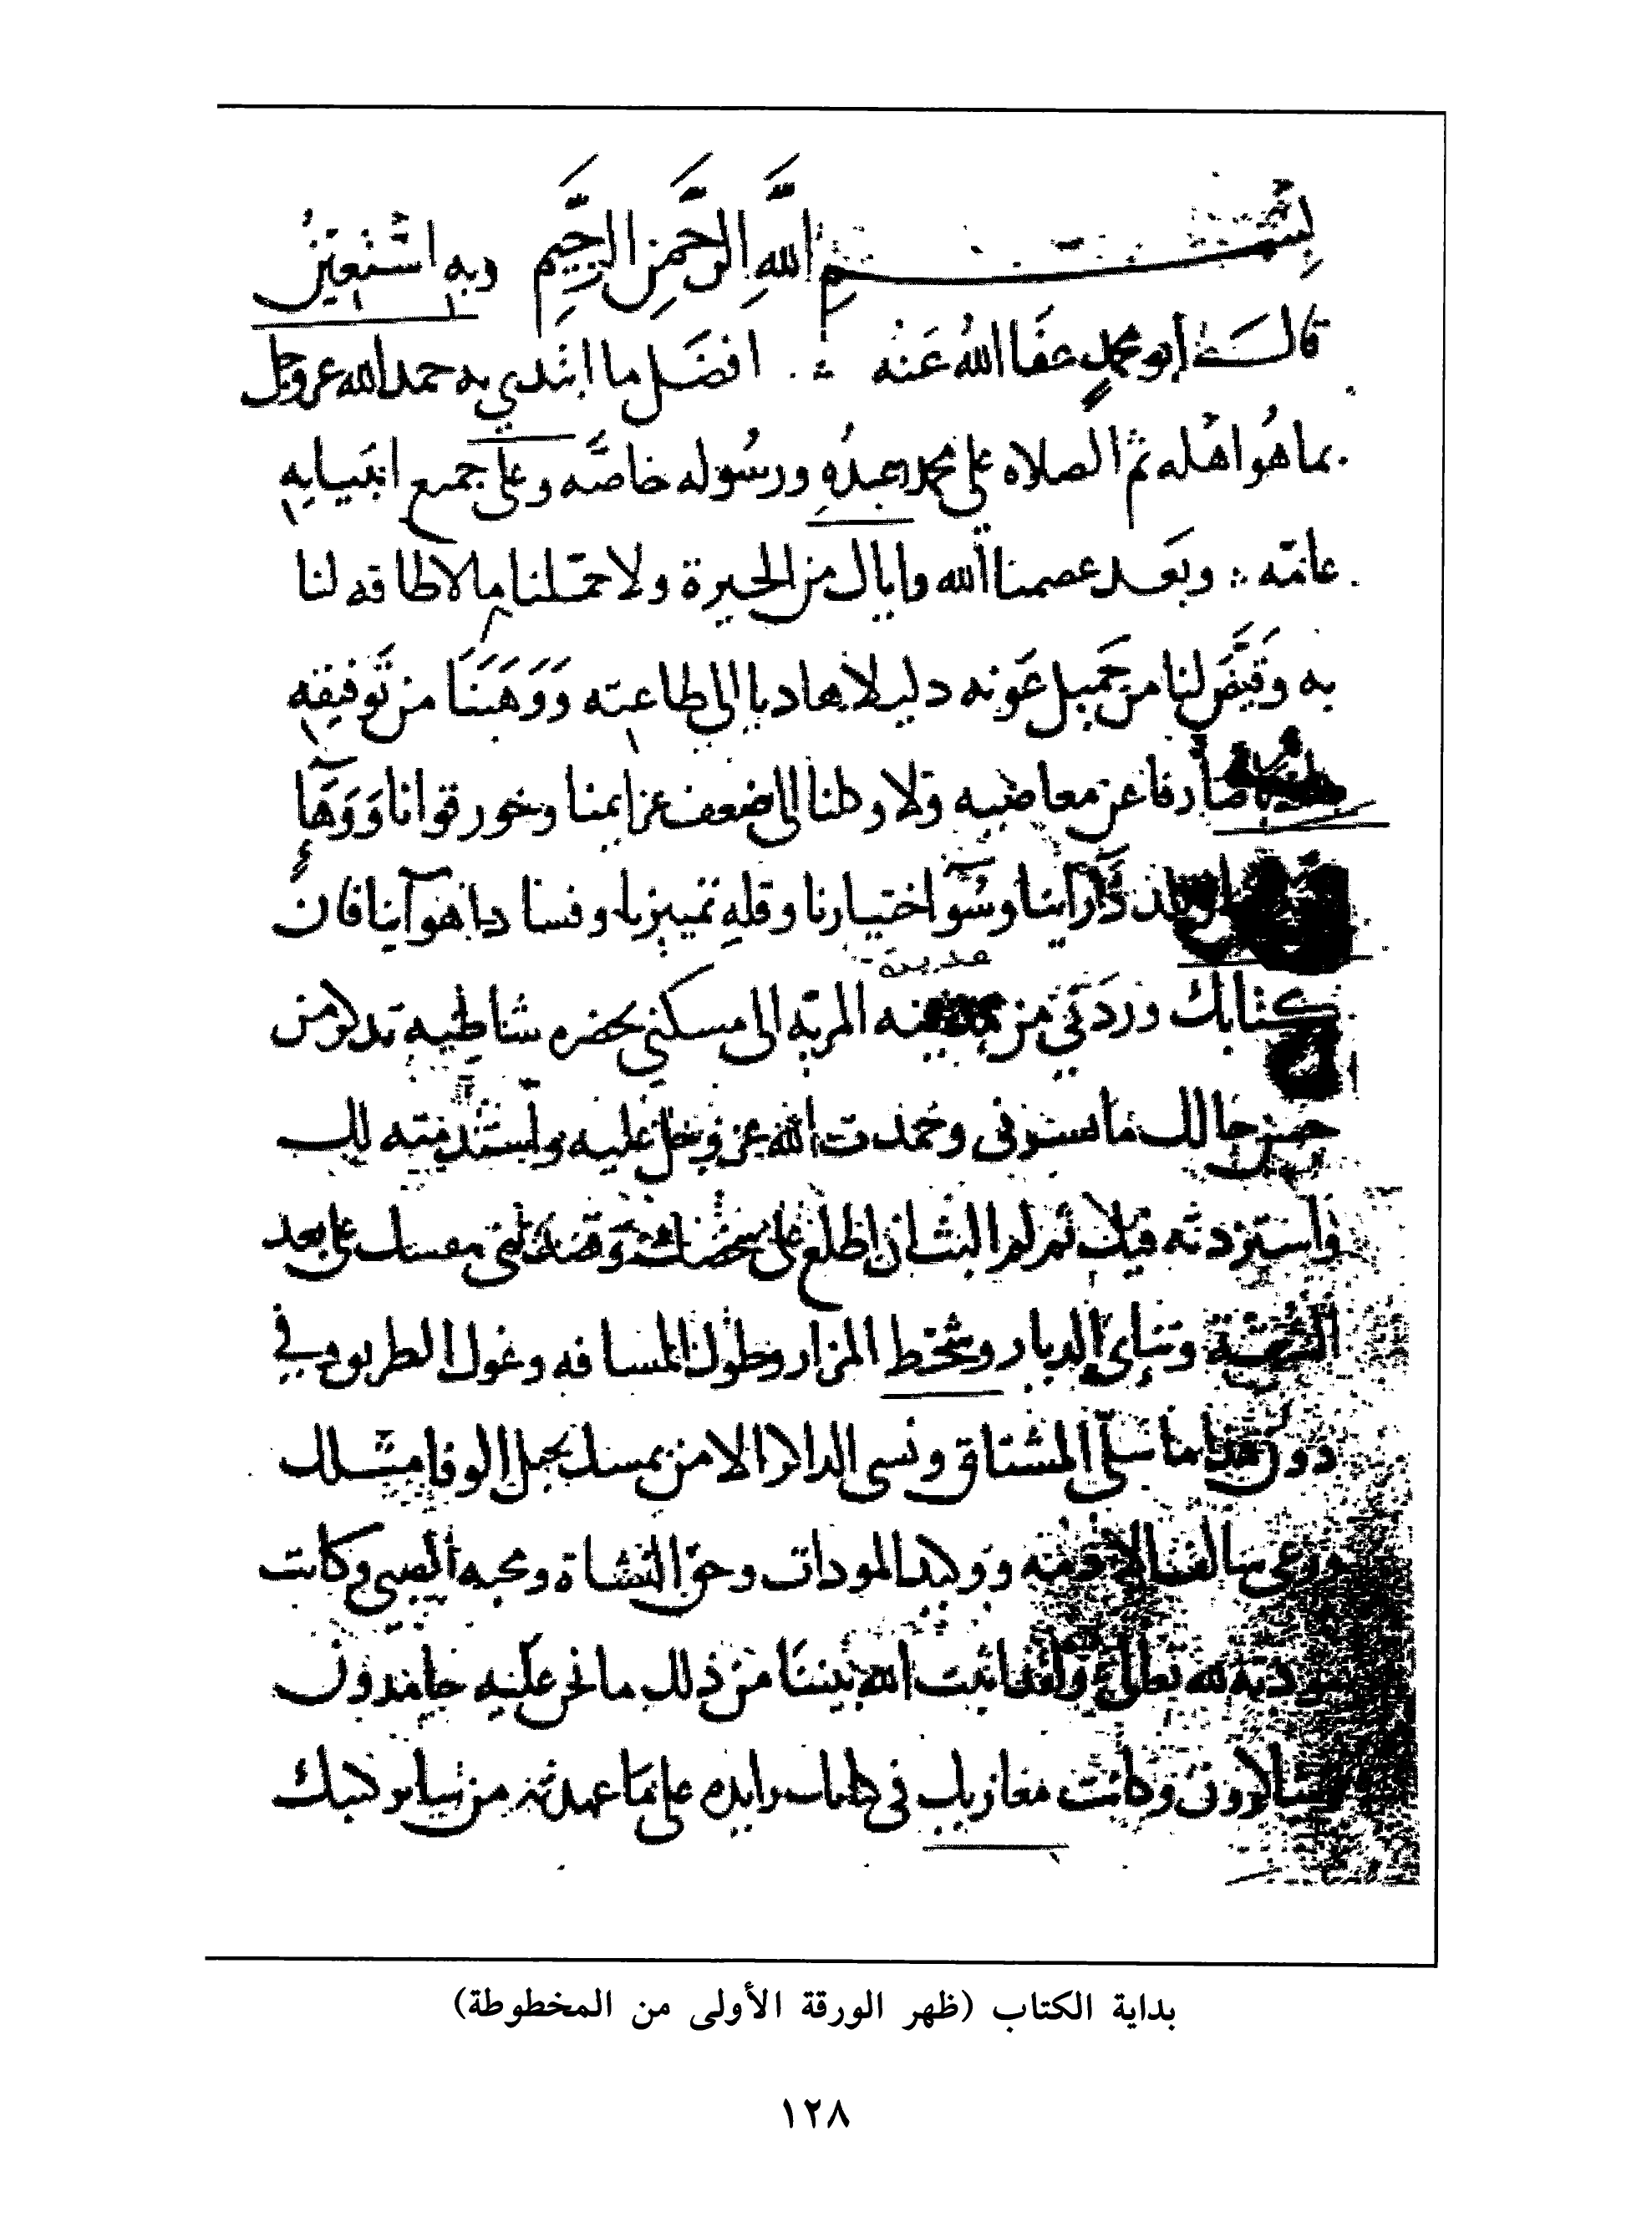 بِسْمِ اللَّهِ الرَّحْمَنِ الرَّحِيمِ وبه استعين
قال أبو محمد عفا الله عنه ∴ افضل ما ابتدي به حمد الله عز وجل
بما هو اهله ثم الصلاه على محمد عبده ورسوله خاصه وعلى جميع انبيايه
عامه ∴ وبعد عصمنا الله واياك من الحيرة ولا حملنا ما لا طاقه لنا
به وقيض لنا من جميل عونه دليلا هاديا الى طاعته ووهبنا من توفيقه
صارفا عن معاصيه ولا وكلنا الى ضعف عزايمنا وخور قوانا ووهآ
ارآينا وسوٓ اختيارنا وقله تمييزنا وفساد اهوآينا فان
كتابك وردني من مدينه المريه الى مسكني بحضره شاطبه تذكر من
حسن حالك ما يسرني وحمدت الله عز وجل عليه واستدمته لك
واستزدته فيك ثم لم البث ان اطلع على شخصك وقصدتني بنفسك على بعد
الشقة وتناى الديار وشحط المزار وطول المسافه وغول الطريق وفي
دون هذا ما سلى المشتاق ونسى الذاكر الا من تمسك بحبل الوفا مثلك
ورعى سالف الاذمه ووكيد المودات وحق النشاة ومحبه الصبى وكانت
مودته لله تعالى ولقد اثبت الله بيننا من ذلك ما نحن عليه حامدون
وشاكرون وكانت مغازيك في كتابك زايده على ما عهدته من ساير كتبك
بداية الكتاب (ظهر الورقة الأولى من المخطوطة)
١٢٨